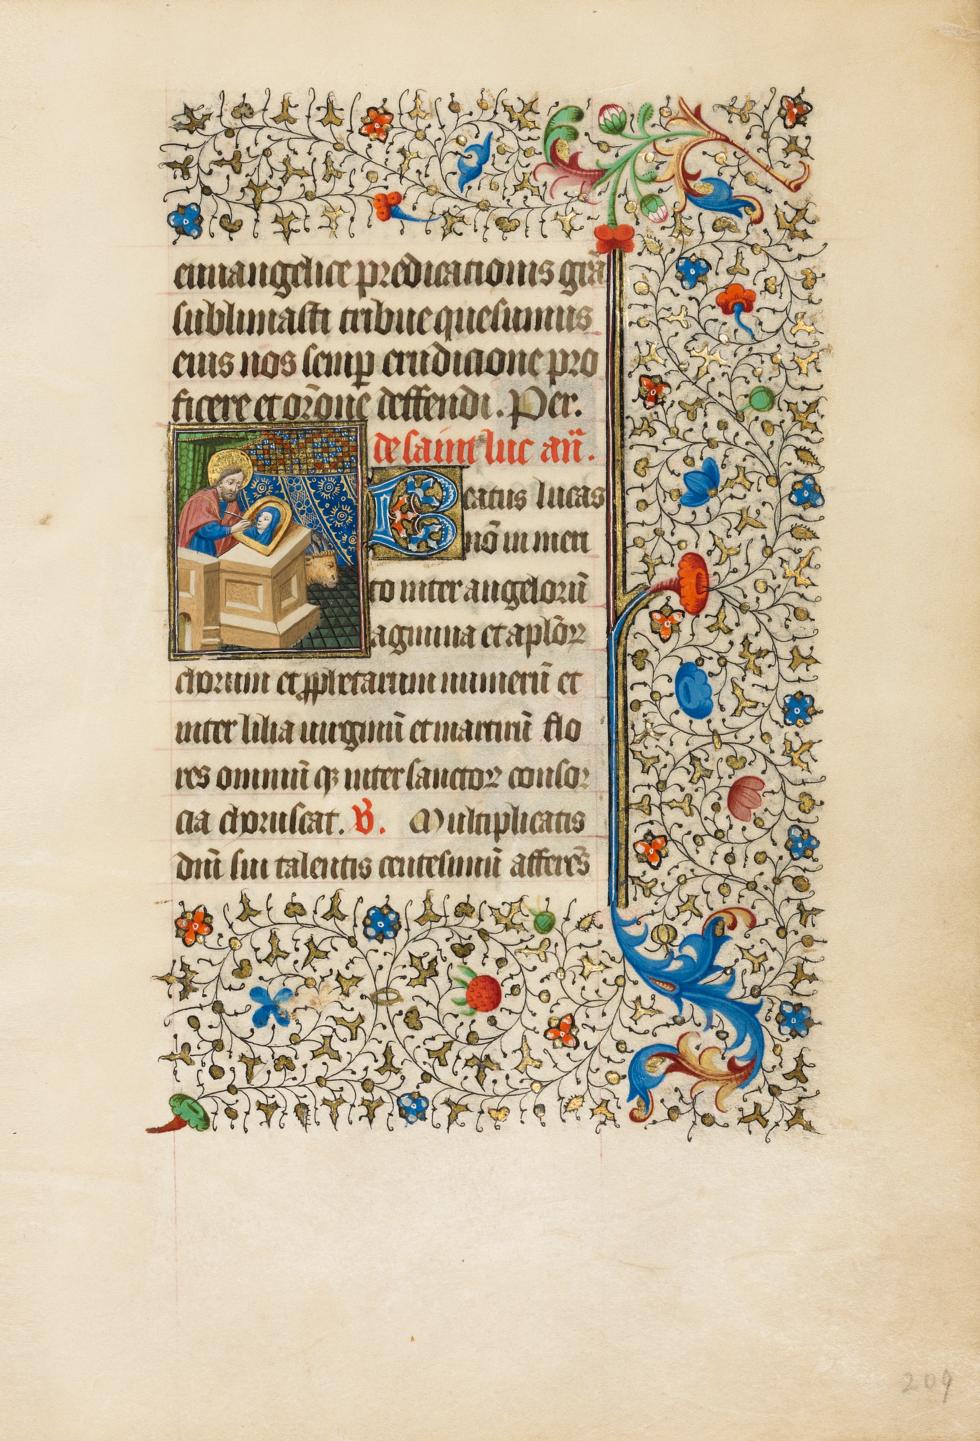 euuangelice predicationis grā
sublimasti tribue quesumus
eius nos semp erudicione pro
ficere et orōne deffendi. Per.
de saint luc añ.
Beatus lucas
nō inmeri
to inter angelorū
agmina et aplōꝝ
chorum et ꝓphetarum numerū et
inter lilia uirginū et martirū flo
res omniū qꝫ inter sanctoꝝ consor
cia choruscat. V. Multiplicatis
dnī sui talentis centesimū afferēs
209